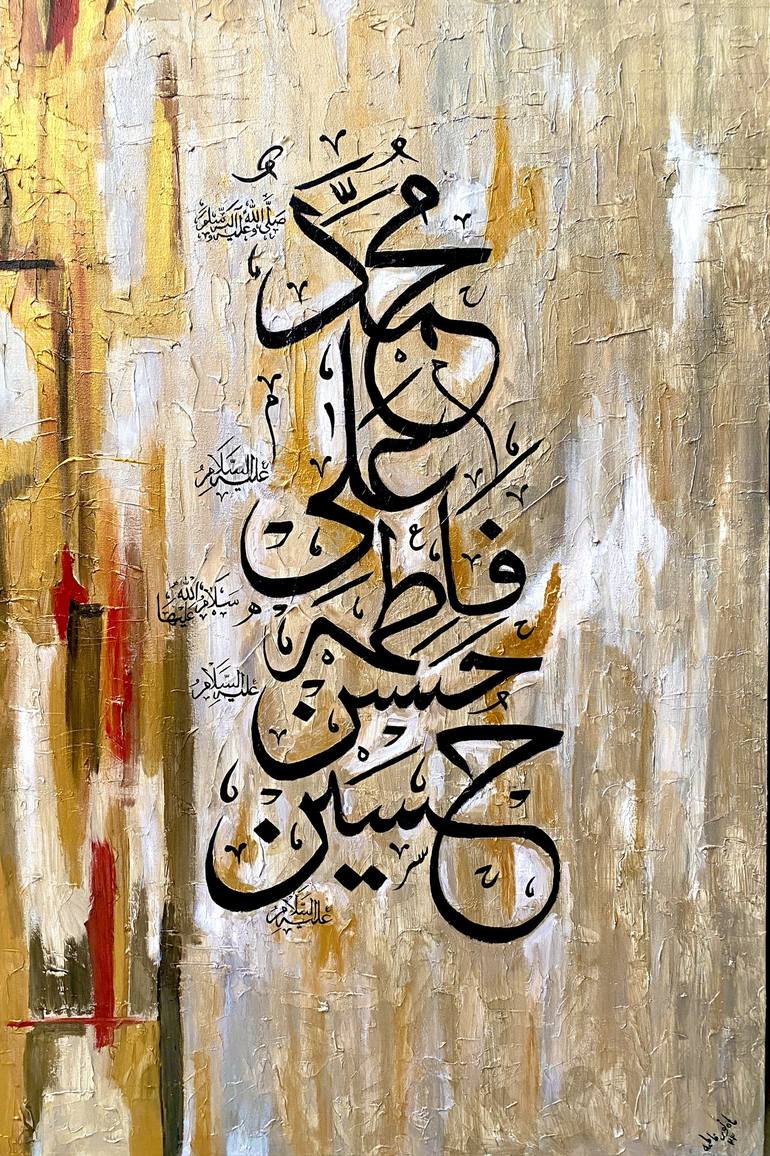 مُحَمَّد
صَلَّى اللهُ عَلَيْهِ وَآلِهِ وَسَلَّمَ
علي
عَلَيْهِ السَّلَامُ
فاطمه
سَلَامُ اللهِ عَلَيْهَا
حسن
عَلَيْهِ السَّلَامُ
حسين
عَلَيْهِ السَّلَامُ